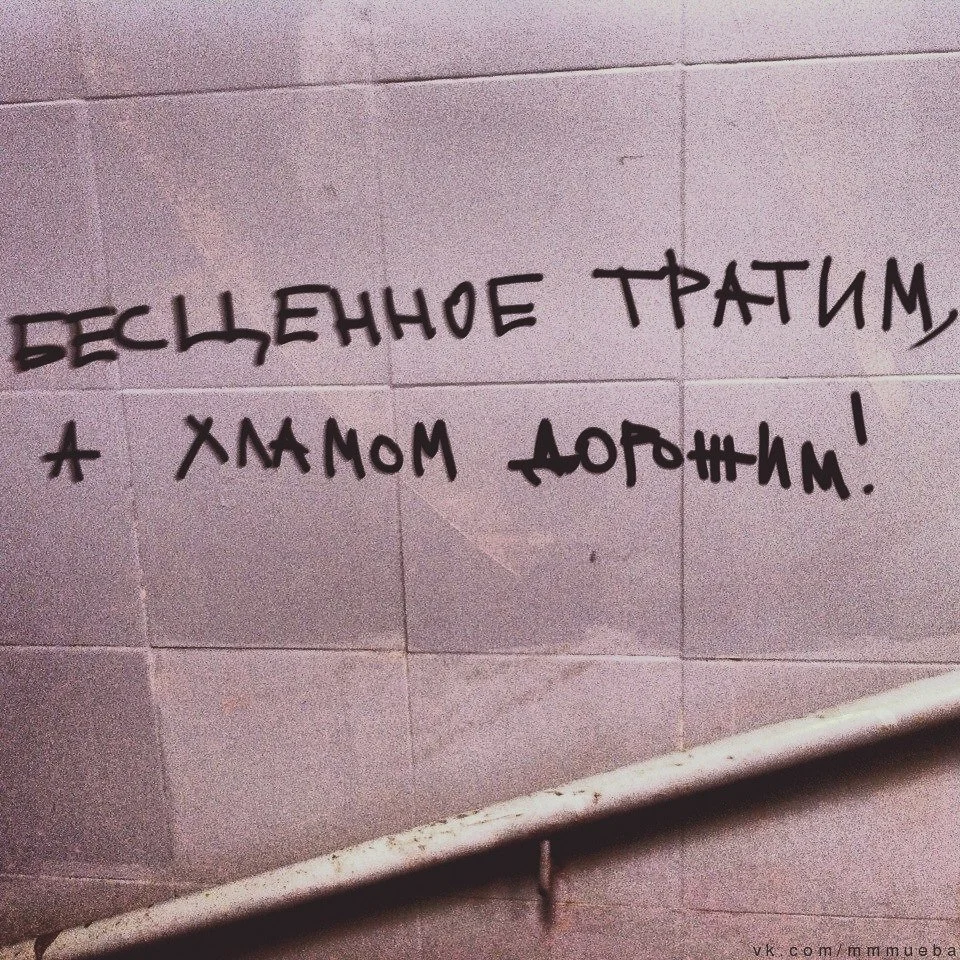 БЕСЦЕННОЕ ТРАТИМ,
А ХЛАМОМ ДОРОЖИМ!
vk.com/mmmueba